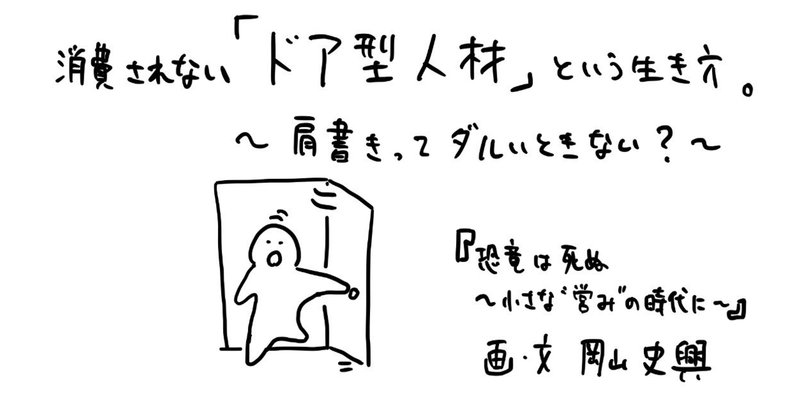 消費されない「ドア型人材」という生き方。
〜肩書きってダルいときない？〜
『恐竜は死ぬ
〜小さな“営み”の時代に〜』
画・文 岡山史興